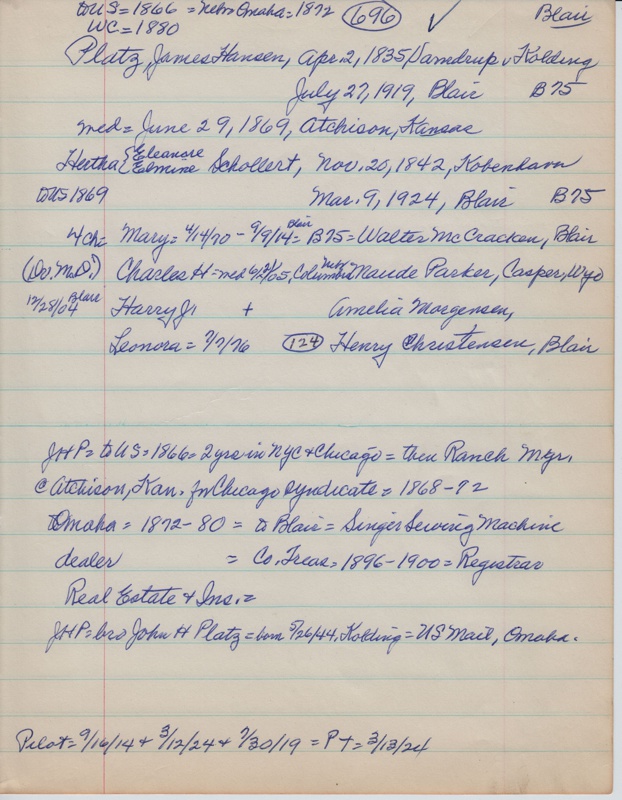 to US = 1866 = Nebr Omaha = 1872 (696) ✓ Blair
WC = 1880
Platz, James Hansen, Apr. 2, 1835, Vamdrup v Kolding
July 27, 1919, Blair B75
med = June 29, 1869, Atchison, Kansas
Hertha {Eleanore Elmine Schollert, Nov. 20, 1842, Kobenhavn
to US 1869 Mar. 9, 1924, Blair B75
4 ch = Mary = 4/14/70 - 9/9/14 = Blair B75 = Walter McCracken, Blair
(Dr. M.D.) Charles H = med 05, Columbus Nebr Maude Parker, Casper, Wyo
12/28/04 Blair Harry J, + Amelia Morgensen,
Leonora = 7/7/76 (124) Henry Christensen, Blair
JHP = to US = 1866 = 2 yrs in NYC + Chicago = then Ranch Mgr.
@ Atchison, Kan. for Chicago syndicate = 1868-72
to Omaha = 1872-80 = to Blair = Singer Sewing Machine
dealer = Co. Treas. = 1896-1900 = Registrar
Real Estate + Ins. =
JHP = bro John H Platz = born 5/26/44, Kolding = US Mail, Omaha.
Pilot = 9/16/14 + 3/12/24 + 7/30/19 = PT = 3/13/24